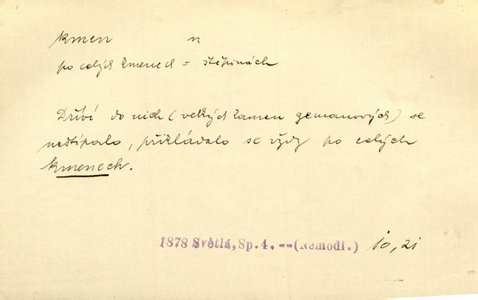 kmen n
po celých kmenech = štěpinách
Dříví do nich (velkých kamen zemanových) se
neštípalo, přikládalo se vždy po celých
kmenech.
1878 Světlá, Sp. 4. -- (Nemodl.) 10, 21